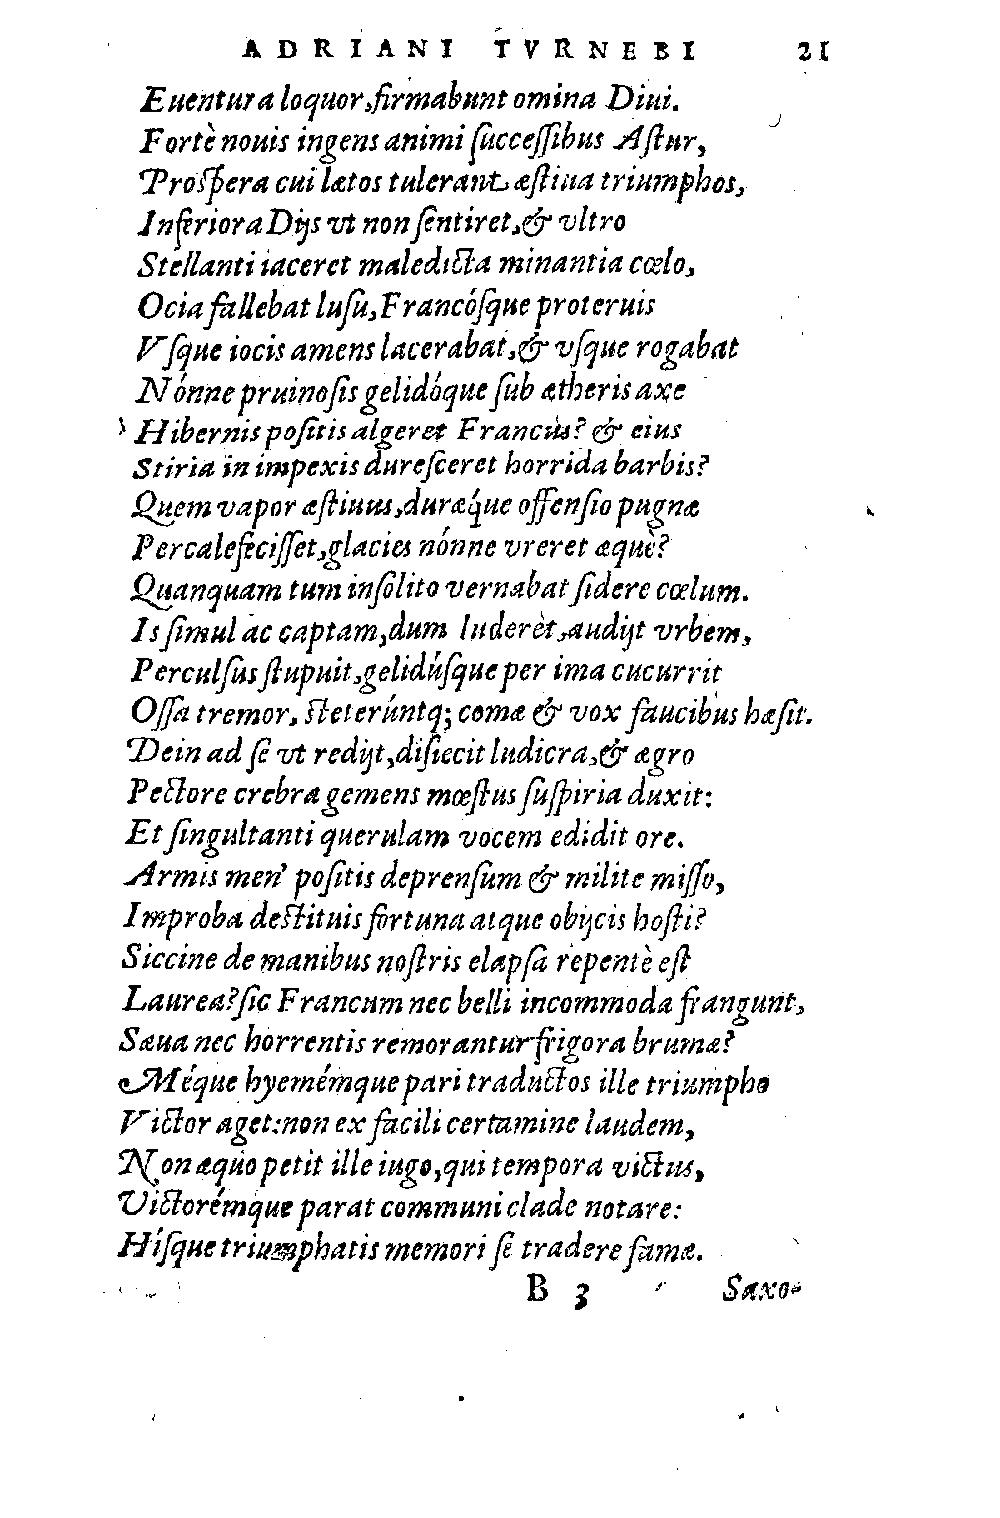 ADRIANI TVRNEBI 21
Euentura loquor, firmabunt omina Diui.
Fortè nouis ingens animi ſucceſſibus Aſtur,
Proſpera cui lætos tulerant æſtiua triumphos,
Inferiora Dijs vt non ſentiret, & vltro
Stellanti iaceret maledicta minantia cœlo,
Ocia fallebat luſu, Francóſque proteruis
Vſque iocis amens lacerabat, & vſque rogabat
Nónne pruinoſis gelidóque ſub ætheris axe
Hibernis poſitis algeret Francus? & eius
Stiria in impexis dureſceret horrida barbis?
Quem vapor æſtiuus, duræq́ue offenſio pugnæ
Percalefeciſſet, glacies nónne vreret æquè?
Quanquam tum inſolito vernabat ſidere cœlum.
Is ſimul ac captam, dum luderet, audijt vrbem,
Perculſus ſtupuit, gelidúſque per ima cucurrit
Oſſa tremor, ſteterúntq; comæ & vox faucibus hæſit.
Dein ad ſe vt redijt, diſiecit ludicra, & ægro
Pectore crebra gemens mœſtus ſuſpiria duxit:
Et ſingultanti querulam vocem edidit ore.
Armis men' poſitis deprenſum & milite miſſo,
Improba deſtituis fortuna atque obijcis hoſti?
Siccine de manibus noſtris elapſa repentè eſt
Laurea? ſic Francum nec belli incommoda frangunt,
Sæua nec horrentis remorantur frigora brumæ?
Méque hyemémque pari traductos ille triumpho
Victor aget: non ex facili certamine laudem,
Non æquo petit ille iugo, qui tempora victus,
Victorémque parat communi clade notare:
Hiſque triumphatis memori ſe tradere famæ.
B 3 Saxo-